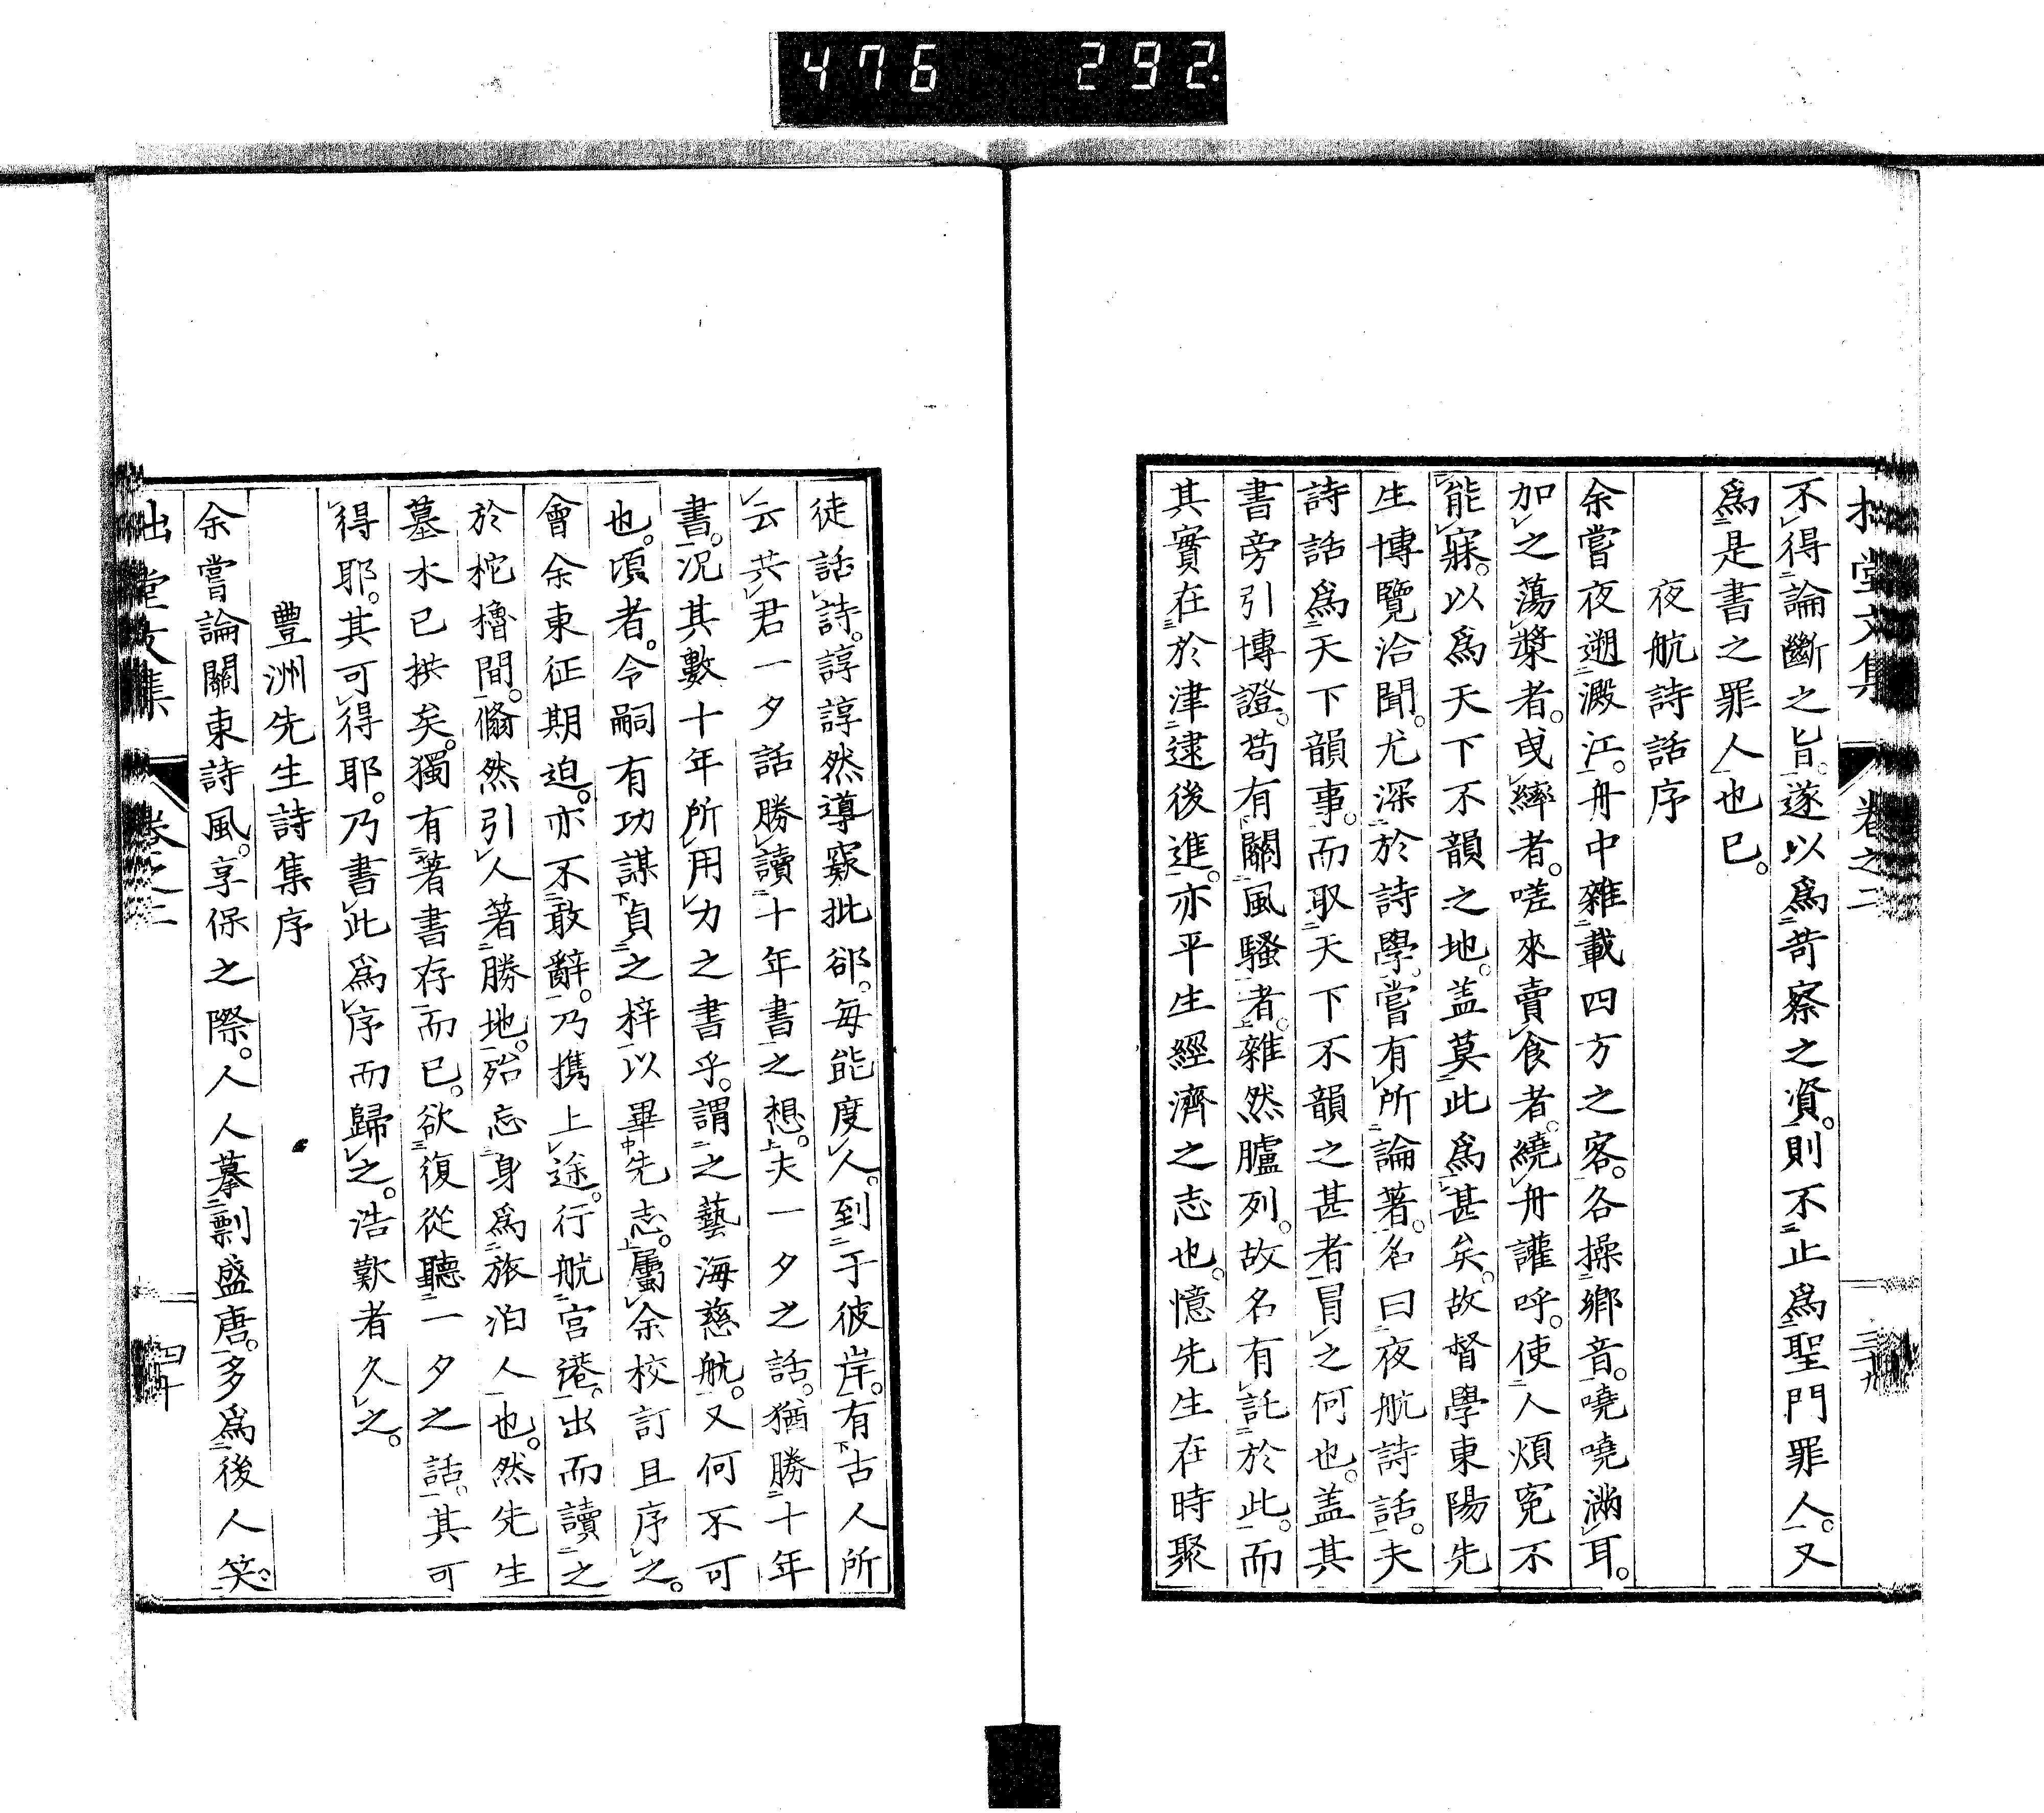 476 292
拙堂文集 卷之二 三十九
不得論斷之旨。遂以爲苛察之資。則不止爲聖門罪人。又
爲是書之罪人也已。
夜航詩話序
余嘗夜遡澱江。舟中雜載四方之客。各操鄉音。嘵嘵滿耳。
加之蕩槳者。曳縴者。嗟來賣食者。繞舟讙呼。使人煩寃不
能寐。以爲天下不韻之地。盖莫此爲甚矣。故督學東陽先
生博覽洽聞。尤深於詩學。嘗有所論著。名曰夜航詩話。夫
詩話爲天下韻事。而取天下不韻之甚者冒之何也。盖其
書旁引博證。苟有關風騷者。雜然臚列。故名有託於此。而
其實在於津逮後進。亦平生經濟之志也。憶先生在時聚
徒話詩。諄諄然導窾批郤。每能度人。到于彼岸。有古人所
云共君一夕話勝讀十年書之想。夫一夕之話。猶勝十年
書。况其數十年所用力之書乎。謂之藝海慈航。又何不可
也。頃者。令嗣有功謀貞之梓以畢先志。屬余校訂且序之。
會余東征期迫。亦不敢辭。乃携上途。行航宮港。出而讀之
於柁櫓間。翛然引人著勝地。殆忘身爲旅泊人也。然先生
墓木已拱矣。獨有著書存而已。欲復從聽一夕之話。其可
得耶。其可得耶。乃書此爲序而歸之。浩歎者久之。
豊洲先生詩集序
余嘗論關東詩風。享保之際。人人摹剽盛唐。多爲後人笑。
拙堂文集 卷之二 四十